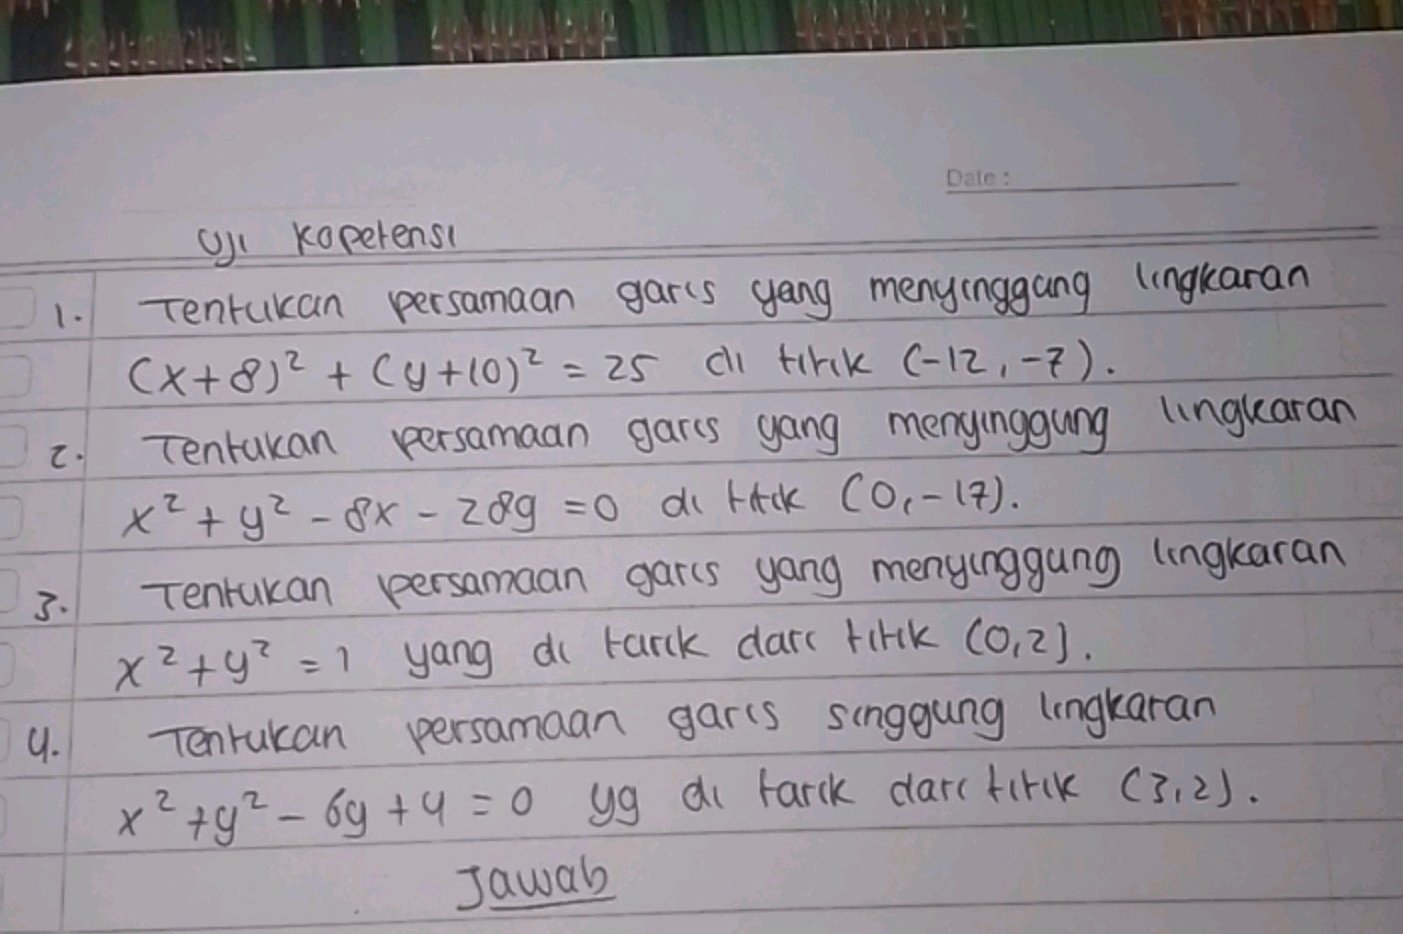 Date :
Uji Kopetensi
1. Tentukan persamaan garis yang menyinggang lingkaran
(x+8)² + (y+10)² = 25 di titik (-12, -7).
2. Tentukan persamaan garis yang menyinggung lingkaran
x² + y² - 8x - 28y = 0 di titik (0, -17).
3. Tentukan persamaan garis yang menyinggung lingkaran
x² + y² = 1 yang di tarik dari titik (0,2).
4. Tentukan persamaan garis singgung lingkaran
x² + y² - 6y + 4 = 0 yg di tarik dari titik (3,2).
Jawab